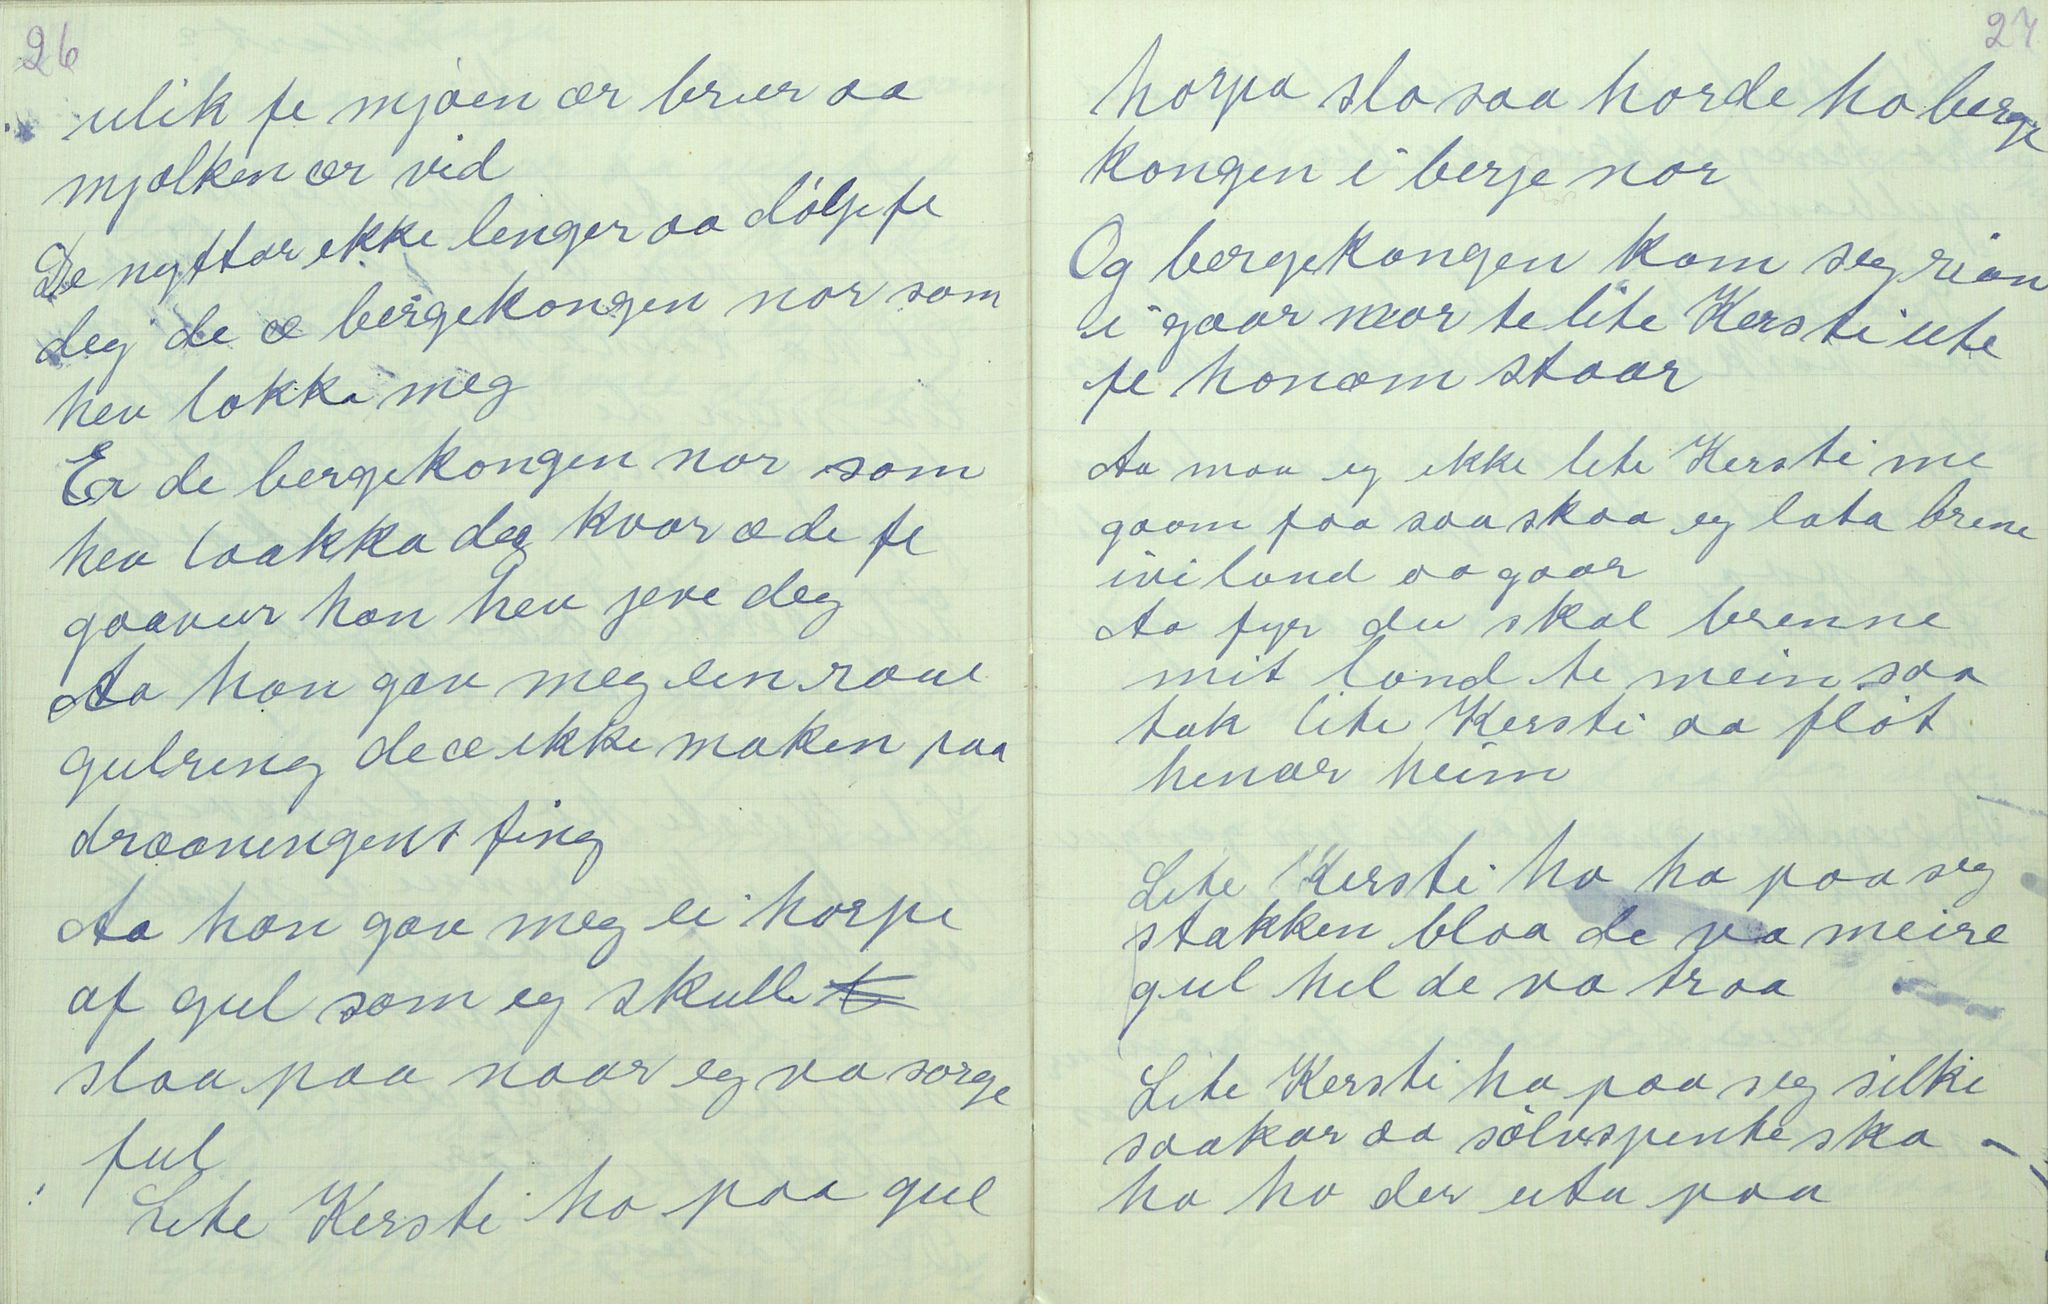 26
ulik fe mjøen ær brun aa
mjølken ær vid
De nyttar ikke lenger aa dölje fe
deg de æ bergekongen nor som
hev lokka meg
Er de bergekongen nor som
hev laakka deg kvar æ de fe
gaavur han hev jeve deg
Aa han gav meg ein raue
gulring de æ ikke maken paa
draaningens fing
Aa han gav meg ei horpe
af gul som eg skulle
slaa paa naar eg va sorge
ful
Lite Kersti ho paa gul
27
horpa slo saa horde ho berge
kongen i berje nor
Og bergekongen kom seg rian
i gaar nær te lite Kersti ute
fe honom staar
Aa maa eg ikke lite Kersti me
gaom faa saa skaa eg lata brene
ivi land aa gaar
Aa fyr du skal brenne
mit land te mein saa
tak lite Kersti aa flöt
henar heim
Lite Kersti ho ha paa seg
stakken blaa de va meire
gul hel de va traa
Lite Kersti ha paa seg silki
saakar aa sölvspente sko
ho ha der uta paa